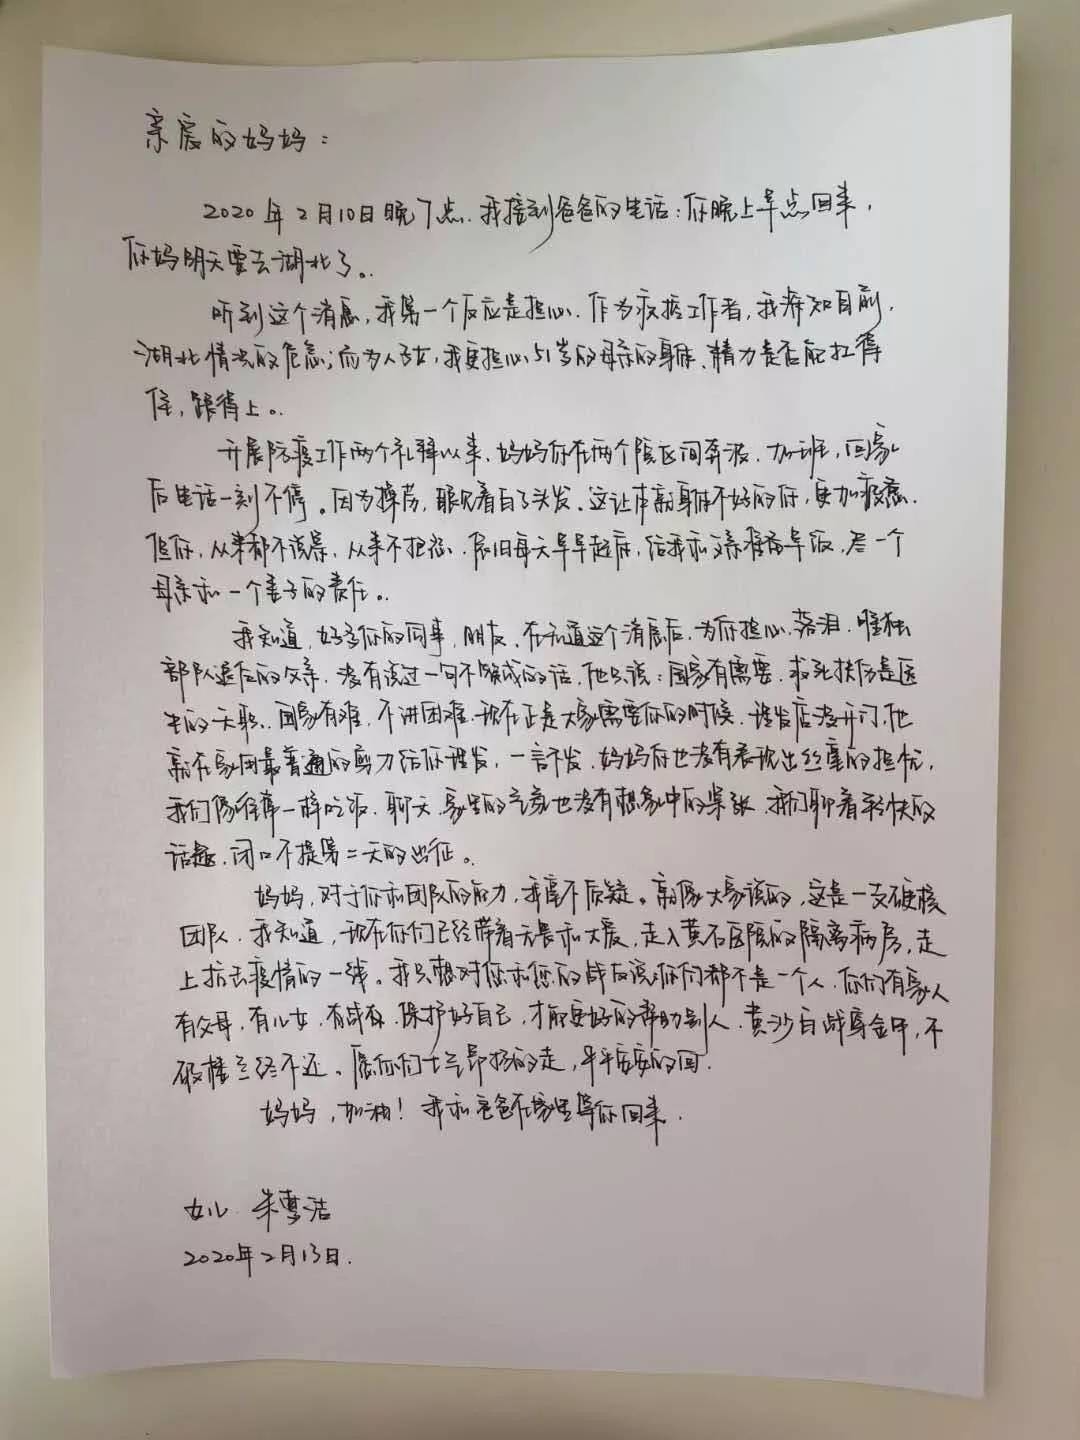 亲爱的妈妈：
2020年2月10日晚7点，我接到爸爸的电话：你晚上早点回来，
你妈明天要去湖北了。
听到这个消息，我第一个反应是担心，作为疾控工作者，我深知目前
湖北情况的危急；而为人子女，我更担心51岁的母亲的身体、精力是否能扛得
住，跟得上。
开展防疫工作两个礼拜以来，妈妈你在两个院区间奔波、加班，回家
后电话一刻不停。因为操劳，眼见着白了头发。这让本就身体不好的你，更加疲惫，
但你，从来都不说累，从来不抱怨，依旧每天早早起床，给我和父亲准备早饭，尽一个
母亲和一个妻子的责任。
我知道，好多你的同事，朋友，在知道这个消息后，为你担心、落泪，唯独
部队退伍的父亲，没有说过一句不赞成的话，他只说：国家有需要，救死扶伤是医
生的天职，国家有难，不讲困难，现在正是大家需要你的时候，理发店没开门，他
就在家用最普通的剪刀给你理发，一言不发，妈妈你也没有表现出丝毫的担忧，
我们像往常一样吃饭，聊天，家里的气氛也没有想象中的紧张，我们聊着轻快的
话题，闭口不提第二天的出征。
妈妈，对于你和团队的能力，我毫不质疑。就像大家说的，这是一支硬核
团队，我知道，现在你们已经带着无畏和大爱，走入黄石医院的隔离病房，走
上抗击疫情的一线。我只想对您和您的战友说：你们都不是一个人，你们有家人
有父母，有儿女，有战友，保护好自己，才能更好的帮助别人，黄沙百战穿金甲，不
破楼兰终不还。愿你们士气昂扬的走，平平安安的回。
妈妈，加油！我和爸爸在家里等你回来。
女儿 朱 洁
2020年2月13日.